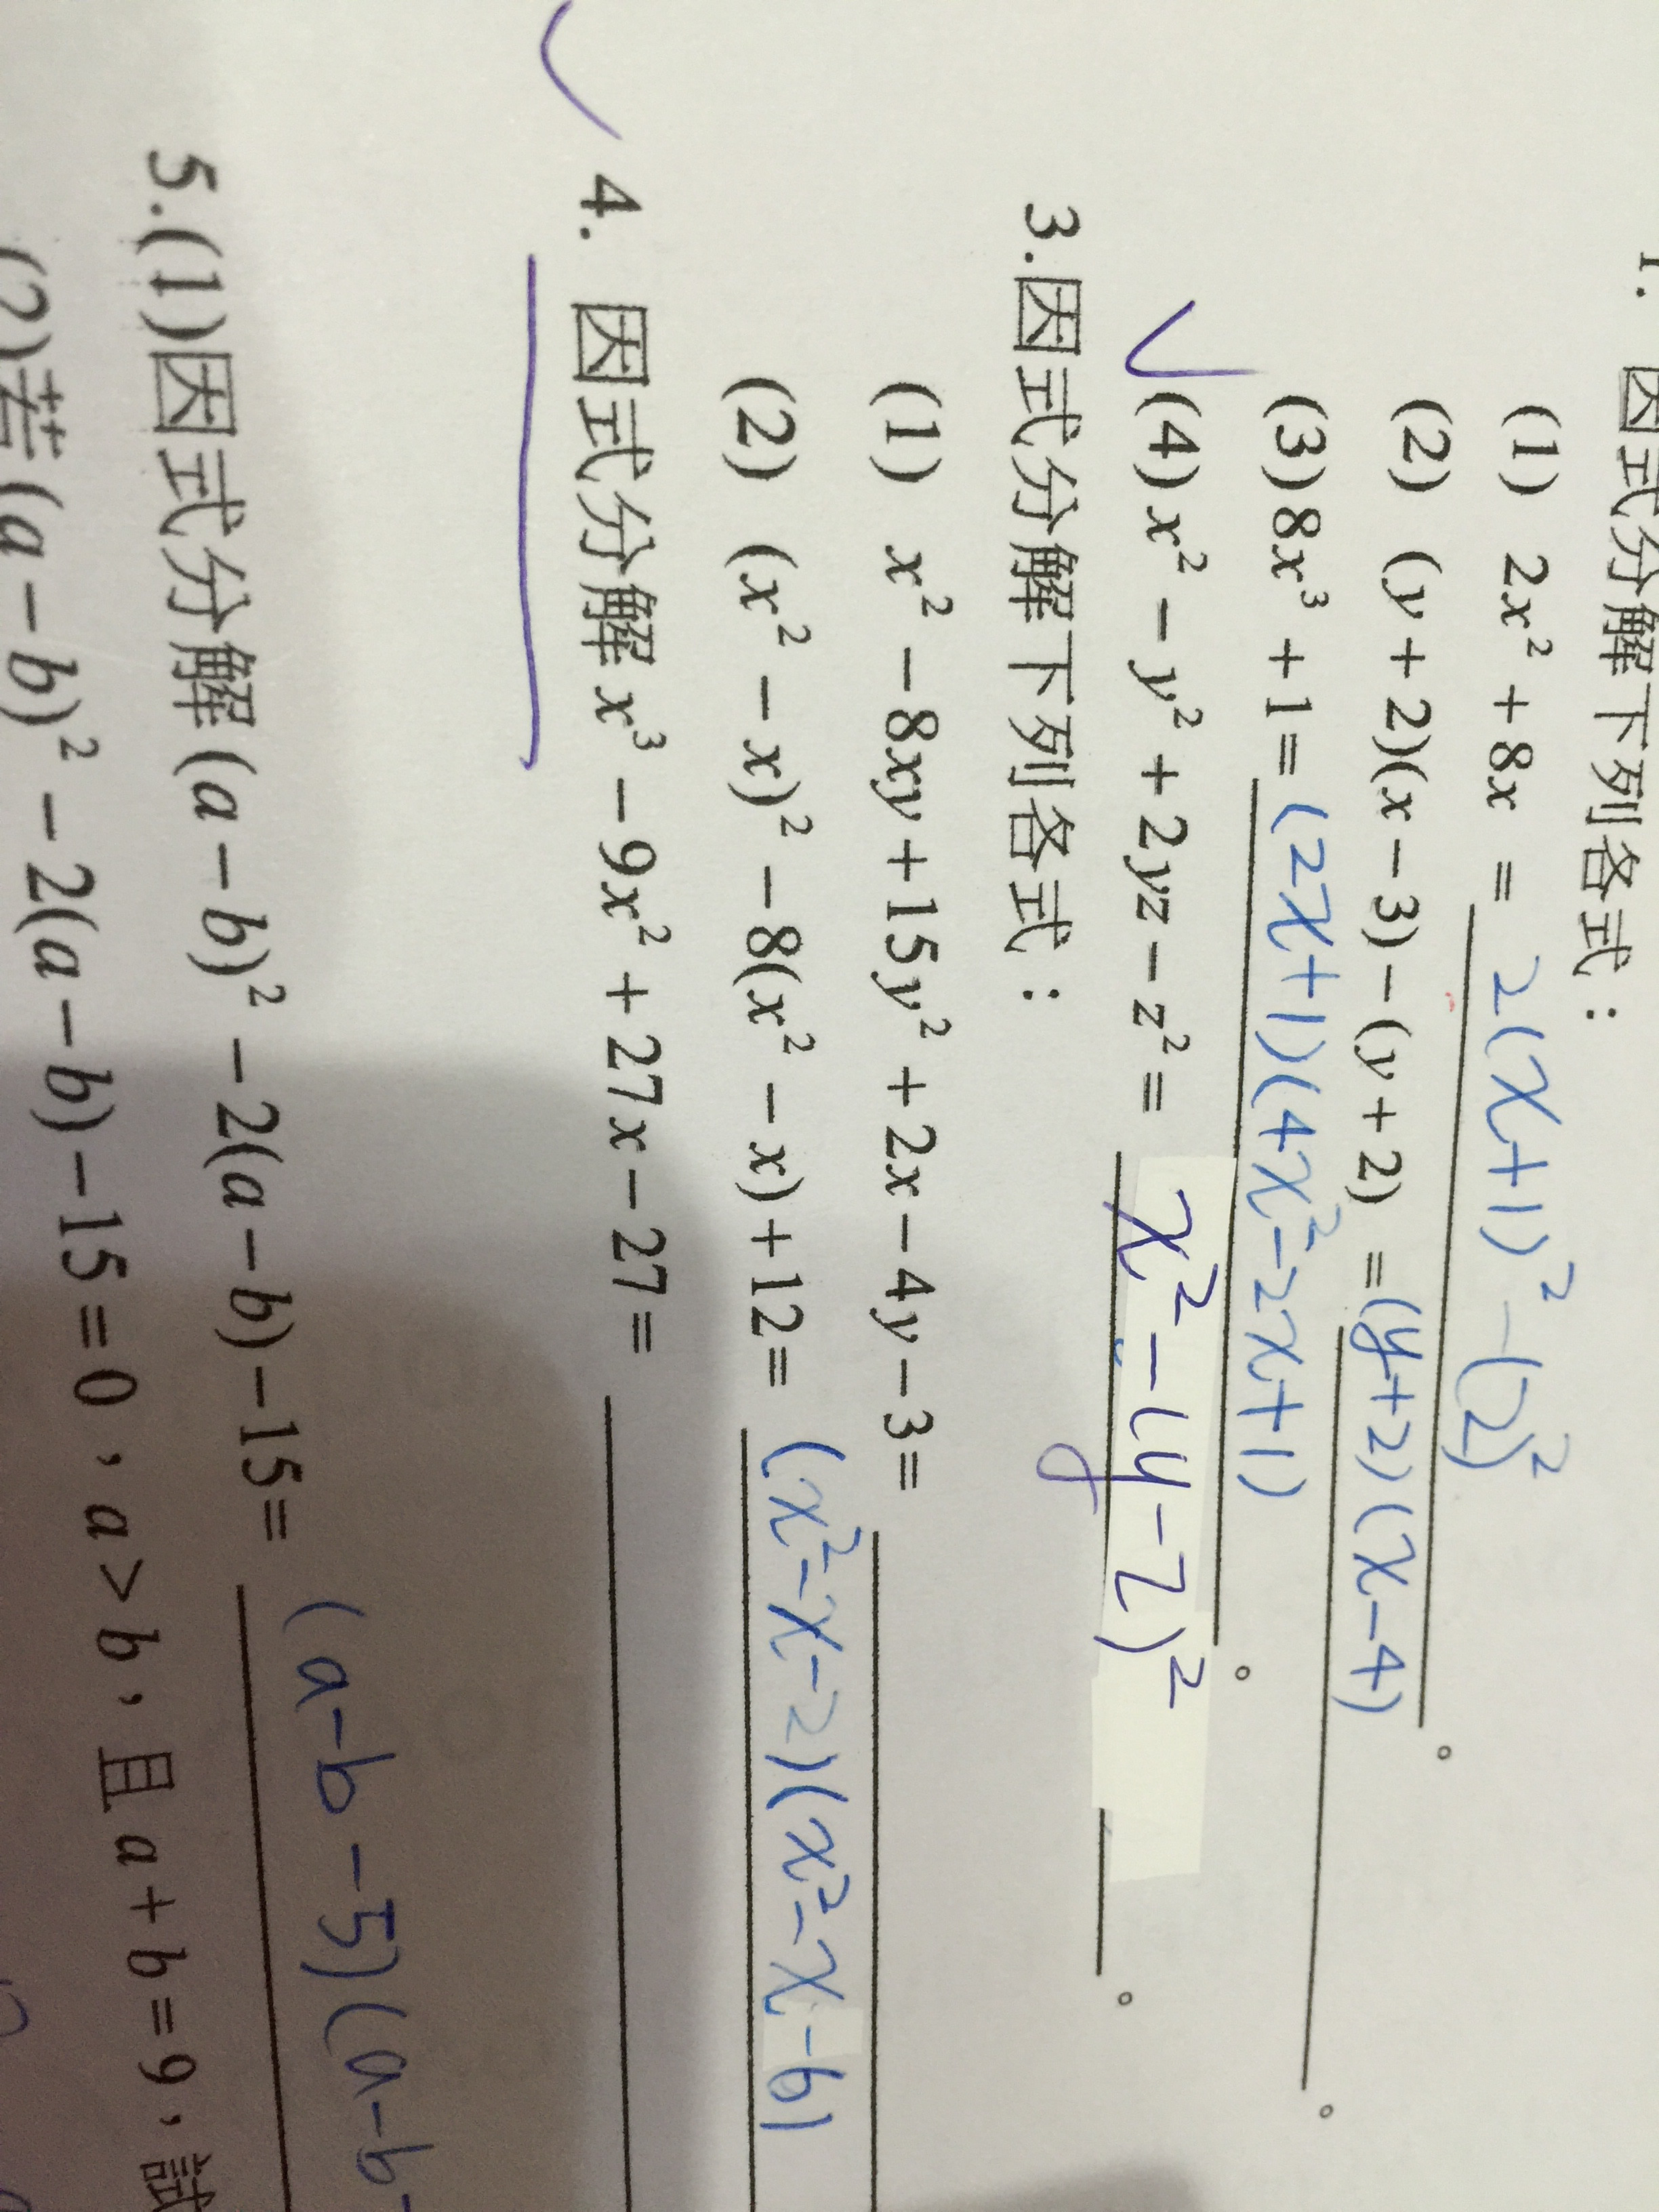 1. 因式分解下列各式：
(1) 2x² + 8x = 2(x+1)² - (2)²
(2) (y + 2)(x - 3) - (y + 2) = (y+2)(x-4)。
(3) 8x³ + 1 = (2x+1)(4x²-2x+1)。
(4) x² - y² + 2yz - z² = x² - (y-z)²。
3.因式分解下列各式：
(1) x² - 8xy + 15y² + 2x - 4y - 3 =
(2) (x² - x)² - 8(x² - x) + 12 = (x²-x-2)(x²-x-6)
4. 因式分解 x³ - 9x² + 27x - 27 =
5.(1)因式分解 (a - b)² - 2(a - b) - 15 = (a-b-5)(a-b
(2)若 (a - b)² - 2(a - b) - 15 = 0，a > b，且 a + b = 9，試